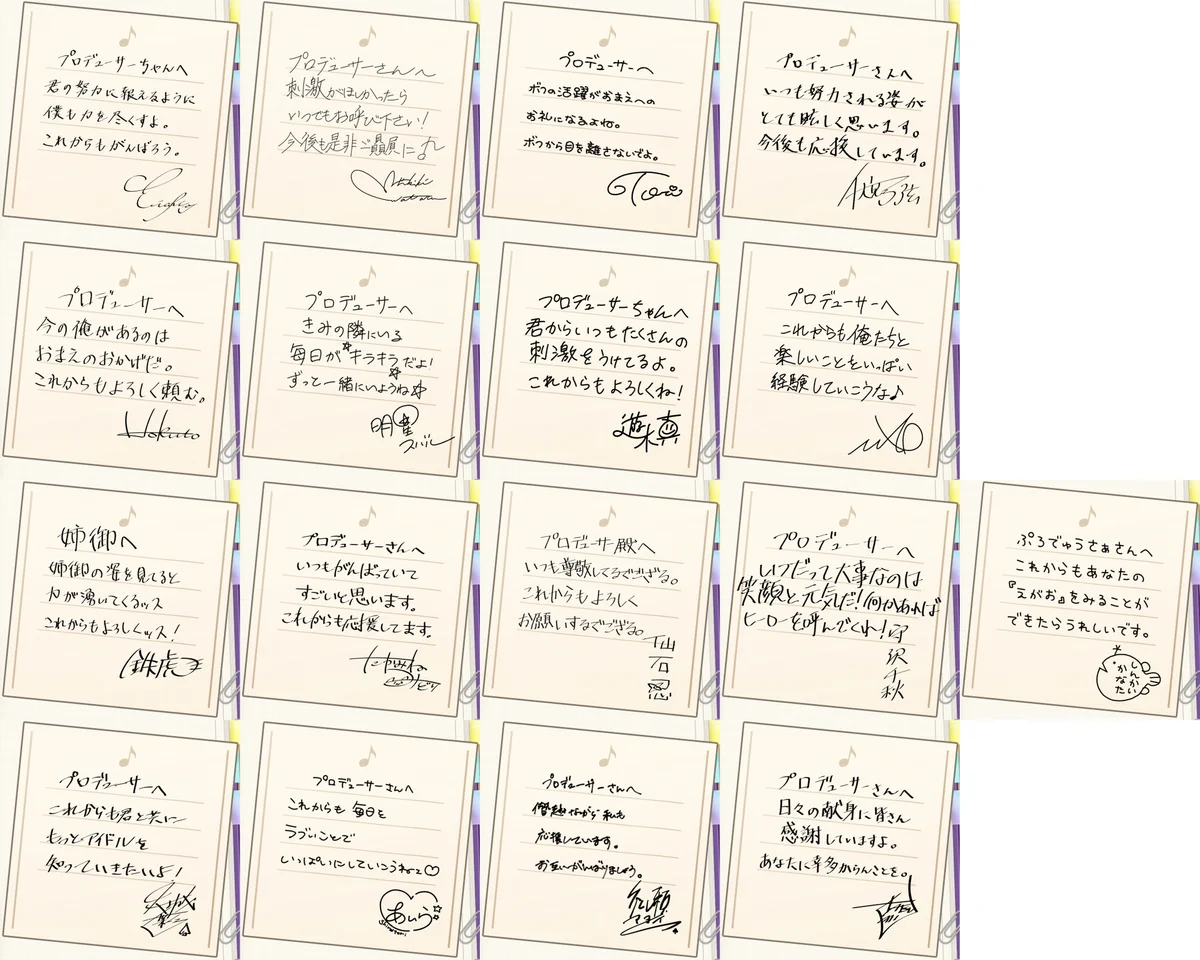 プロデューサーちゃんへ
君の努力に報えるように
僕も力を尽くすよ。
これからもがんばろう。
Eichi
プロデューサーさんへ
刺激がほしかったら
いつでもお呼び下さい!
今後も是非ご贔屓に
プロデューサーへ
ボクの活躍がおまえへの
お礼になるよね。
ボクから目を離さないでよ。
Tori
プロデューサーさんへ
いつも努力される姿が
とても眩しく思います。
今後も応援しています。
伏見弓弦
プロデューサーへ
今の俺があるのは
おまえのおかげだ。
これからもよろしく頼む。
Hokuto
プロデューサーへ
きみの隣にいる
毎日がキラキラだよ!
ずっと一緒にいようね☆
明星
スバル
プロデューサーちゃんへ
君からいつもたくさんの
刺激をうけてるよ。
これからもよろしくね!
遊木真
プロデューサーへ
これからも俺たちと
楽しいことをいっぱい
経験していこうな♪
姉御へ
姉御の姿を見てると
力が湧いてくるッス
これからもよろしくッス!
鉄虎
プロデューサーさんへ
いつもがんばっていて
すごいと思います。
これからも応援してます。
たかみね
プロデューサー殿へ
いつも尊敬してるでござる。
これからもよろしく
お願いするでござる。
仙石忍
プロデューサーへ
いつだって大事なのは
笑顔と元気だ!何かあれば
ヒーローを呼んでくれ!
守沢千秋
ぷろでゅうさぁさんへ
これからもあなたの
『えがお』をみることが
できたらうれしいです。
しんかい
かなた
プロデューサーへ
これからも君と共に
もっとアイドルを
知っていきたいよ!
プロデューサーさんへ
これからも毎日を
ラブいことで
いっぱいにしていこうねっ♡
あいら
Shiratori
プロデューサーさんへ
僭越ながら私も
応援しています。
お互いがんばりましょう。
プロデューサーさんへ
日々の献身に皆さん
感謝していますよ。
あなたに幸多からんことを。